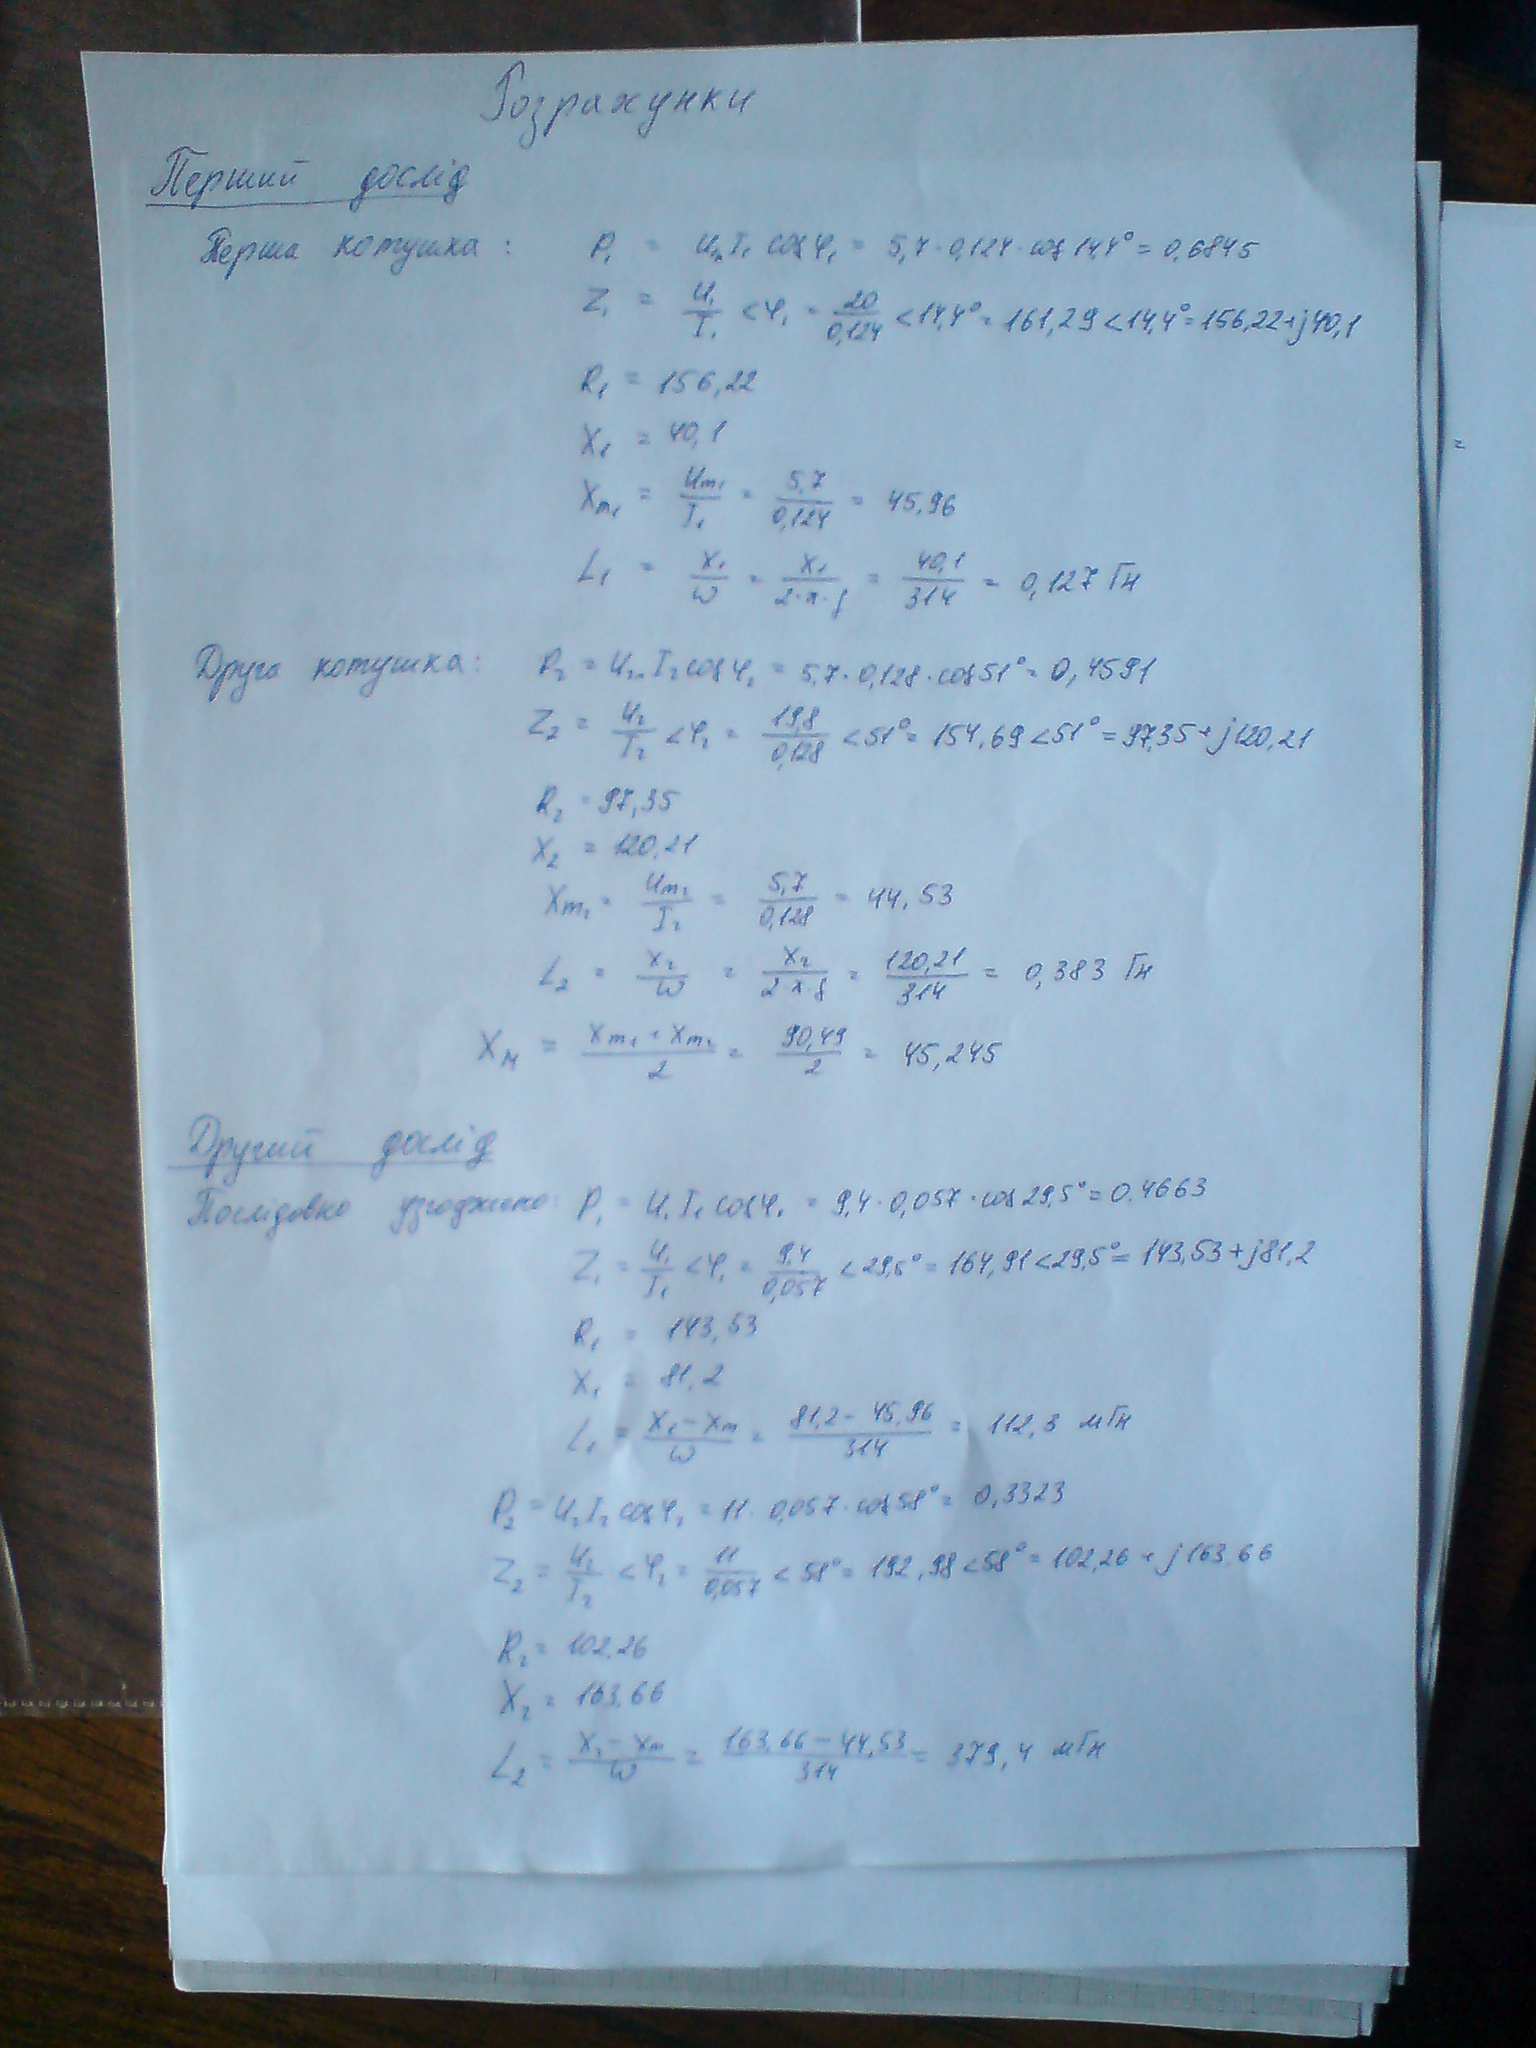 Розрахунки
Перший дослід
Перша котушка: P₁ = Uₘ I₁ cos φ₁ = 5,7 · 0,124 · cos 14,4° = 0,6845
Z₁ = U₁/I₁ < φ₁ = 20/0,124 < 14,4° = 161,29 < 14,4° = 156,22 + j40,1
R₁ = 156,22
X₁ = 40,1
Xm₁ = Um₁/I₁ = 5,7/0,124 = 45,96
L₁ = X₁/ω = X₁/2·π·f = 40,1/314 = 0,127 Гн
Друга котушка: P₂ = U₂ₘ I₂ cos φ₂ = 5,7 · 0,128 · cos 51° = 0,4591
Z₂ = U₂/I₂ < φ₂ = 19,8/0,128 < 51° = 154,69 < 51° = 97,35 + j120,21
R₂ = 97,35
X₂ = 120,21
Xm₂ = Um₂/I₂ = 5,7/0,128 = 44,53
L₂ = X₂/ω = X₂/2·π·f = 120,21/314 = 0,383 Гн
X_M = Xm₁ + Xm₂/2 = 90,49/2 = 45,245
Другий дослід
Послідовно узгоджено: P₁ = U₁ I₁ cos φ₁ = 9,4 · 0,057 · cos 29,5° = 0.4663
Z₁ = U₁/I₁ < φ₁ = 9,4/0,057 < 29,5° = 164,91 < 29,5° = 143,53 + j81,2
R₁ = 143,53
X₁ = 81,2
L₁ = X₁ - Xm/ω = 81,2 - 45,96/314 = 112,3 мГн
P₂ = U₂ I₂ cos φ₂ = 11 · 0,057 · cos 58° = 0,3323
Z₂ = U₂/I₂ < φ₂ = 11/0,057 < 58° = 192,98 < 58° = 102,26 + j163,66
R₂ = 102,26
X₂ = 163,66
L₂ = X₂ - Xm/ω = 163,66 - 44,53/314 = 379,4 мГн
=